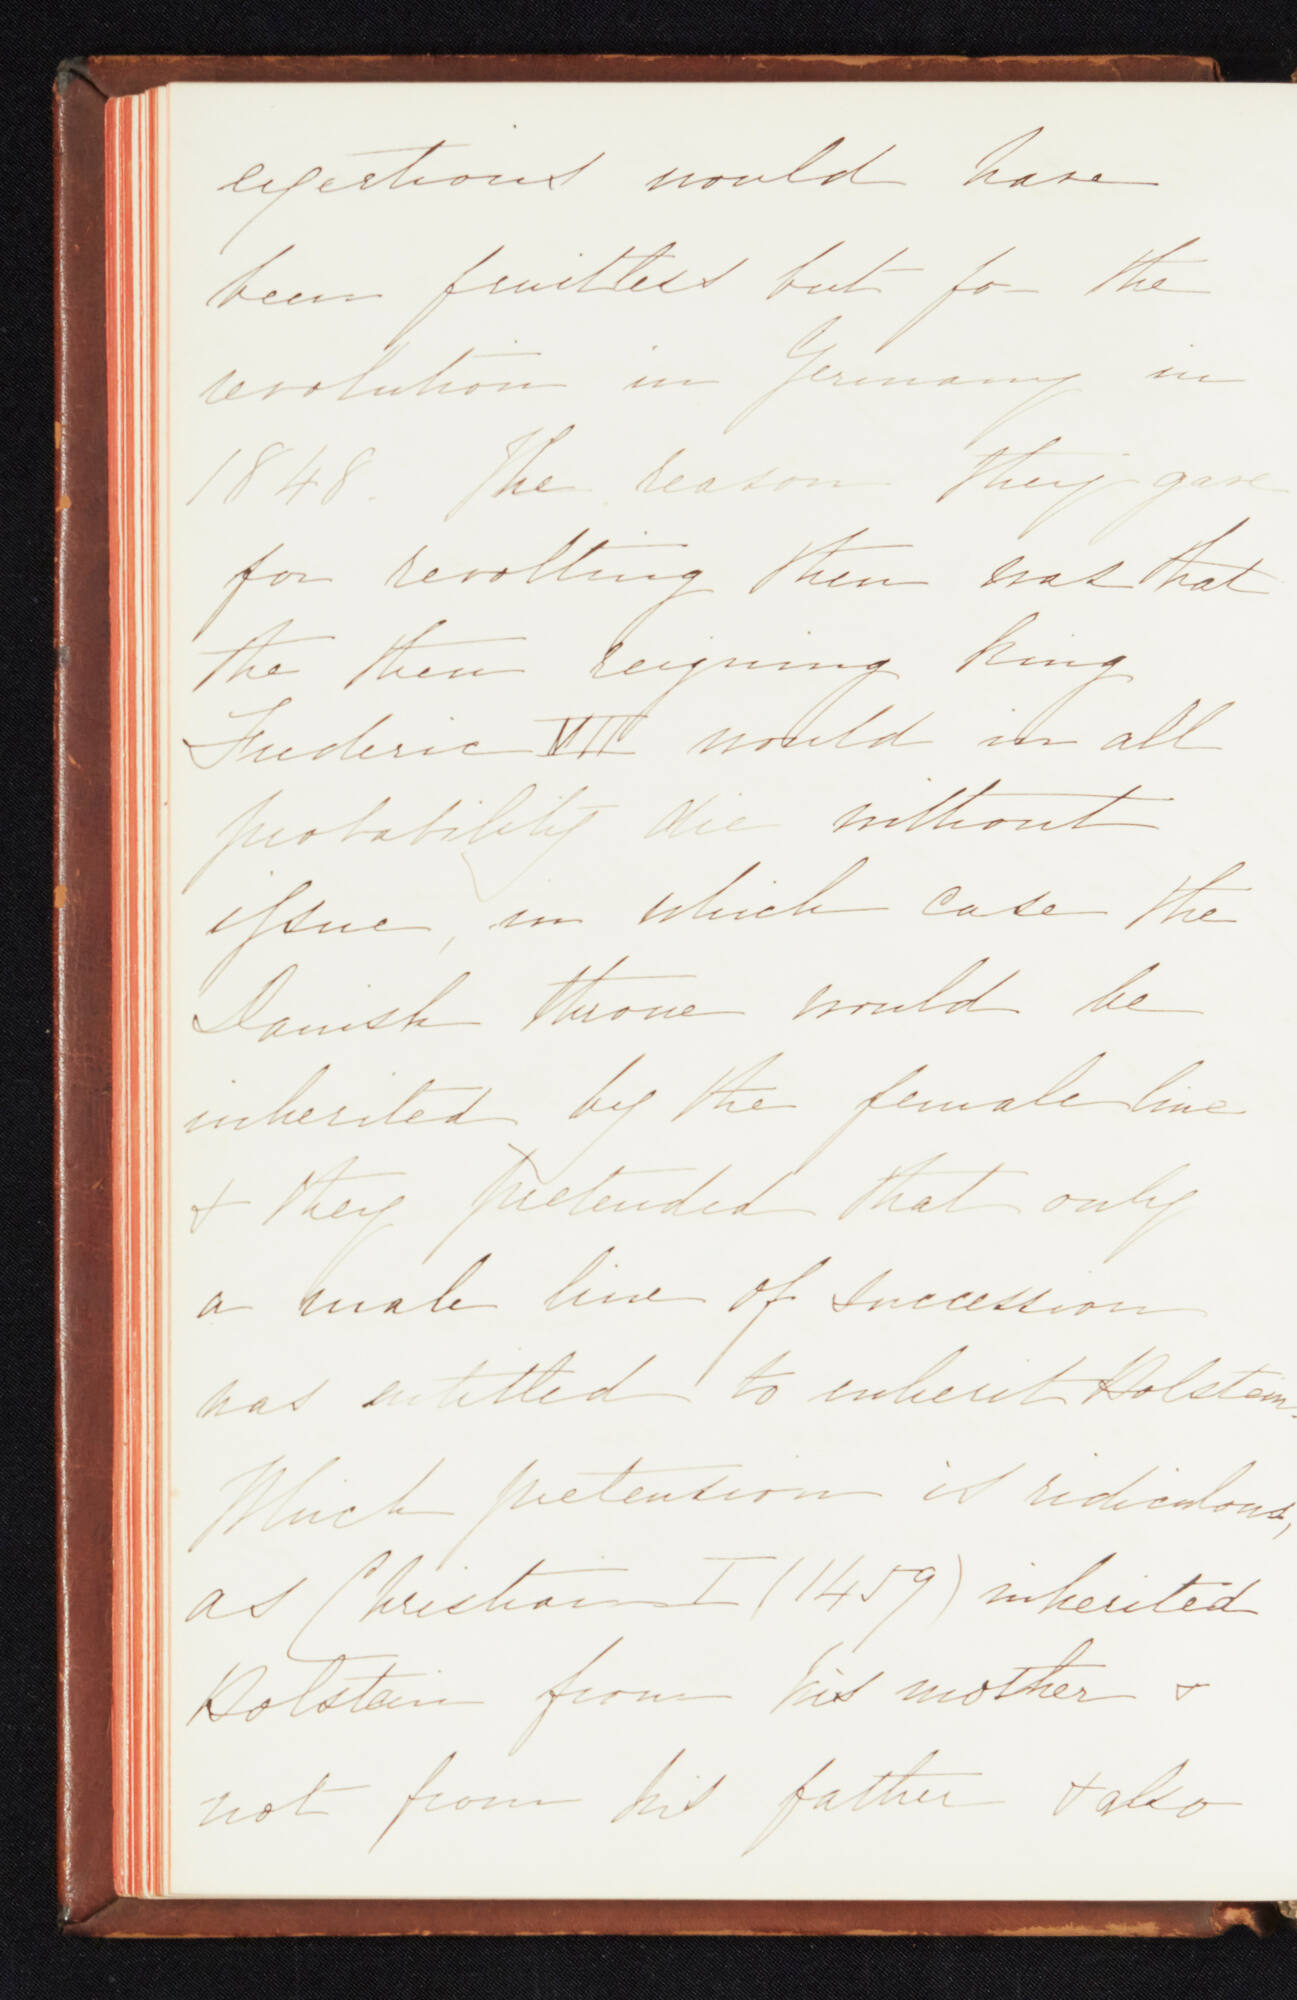 exertions would have
been fruitless but for the
revolution in Germany in
1848. The reason they gave
for revolting then was that
the then reigning King
Frederic VII would in all
probability die without
issue, in which case the
Danish throne would be
inherited by the female line
& they pretended that only
a male line of succession
was entitled to inherit Holstein.
Which pretension is ridiculous,
as Christian I (1459) inherited
Holstein from his mother &
not from his father & also